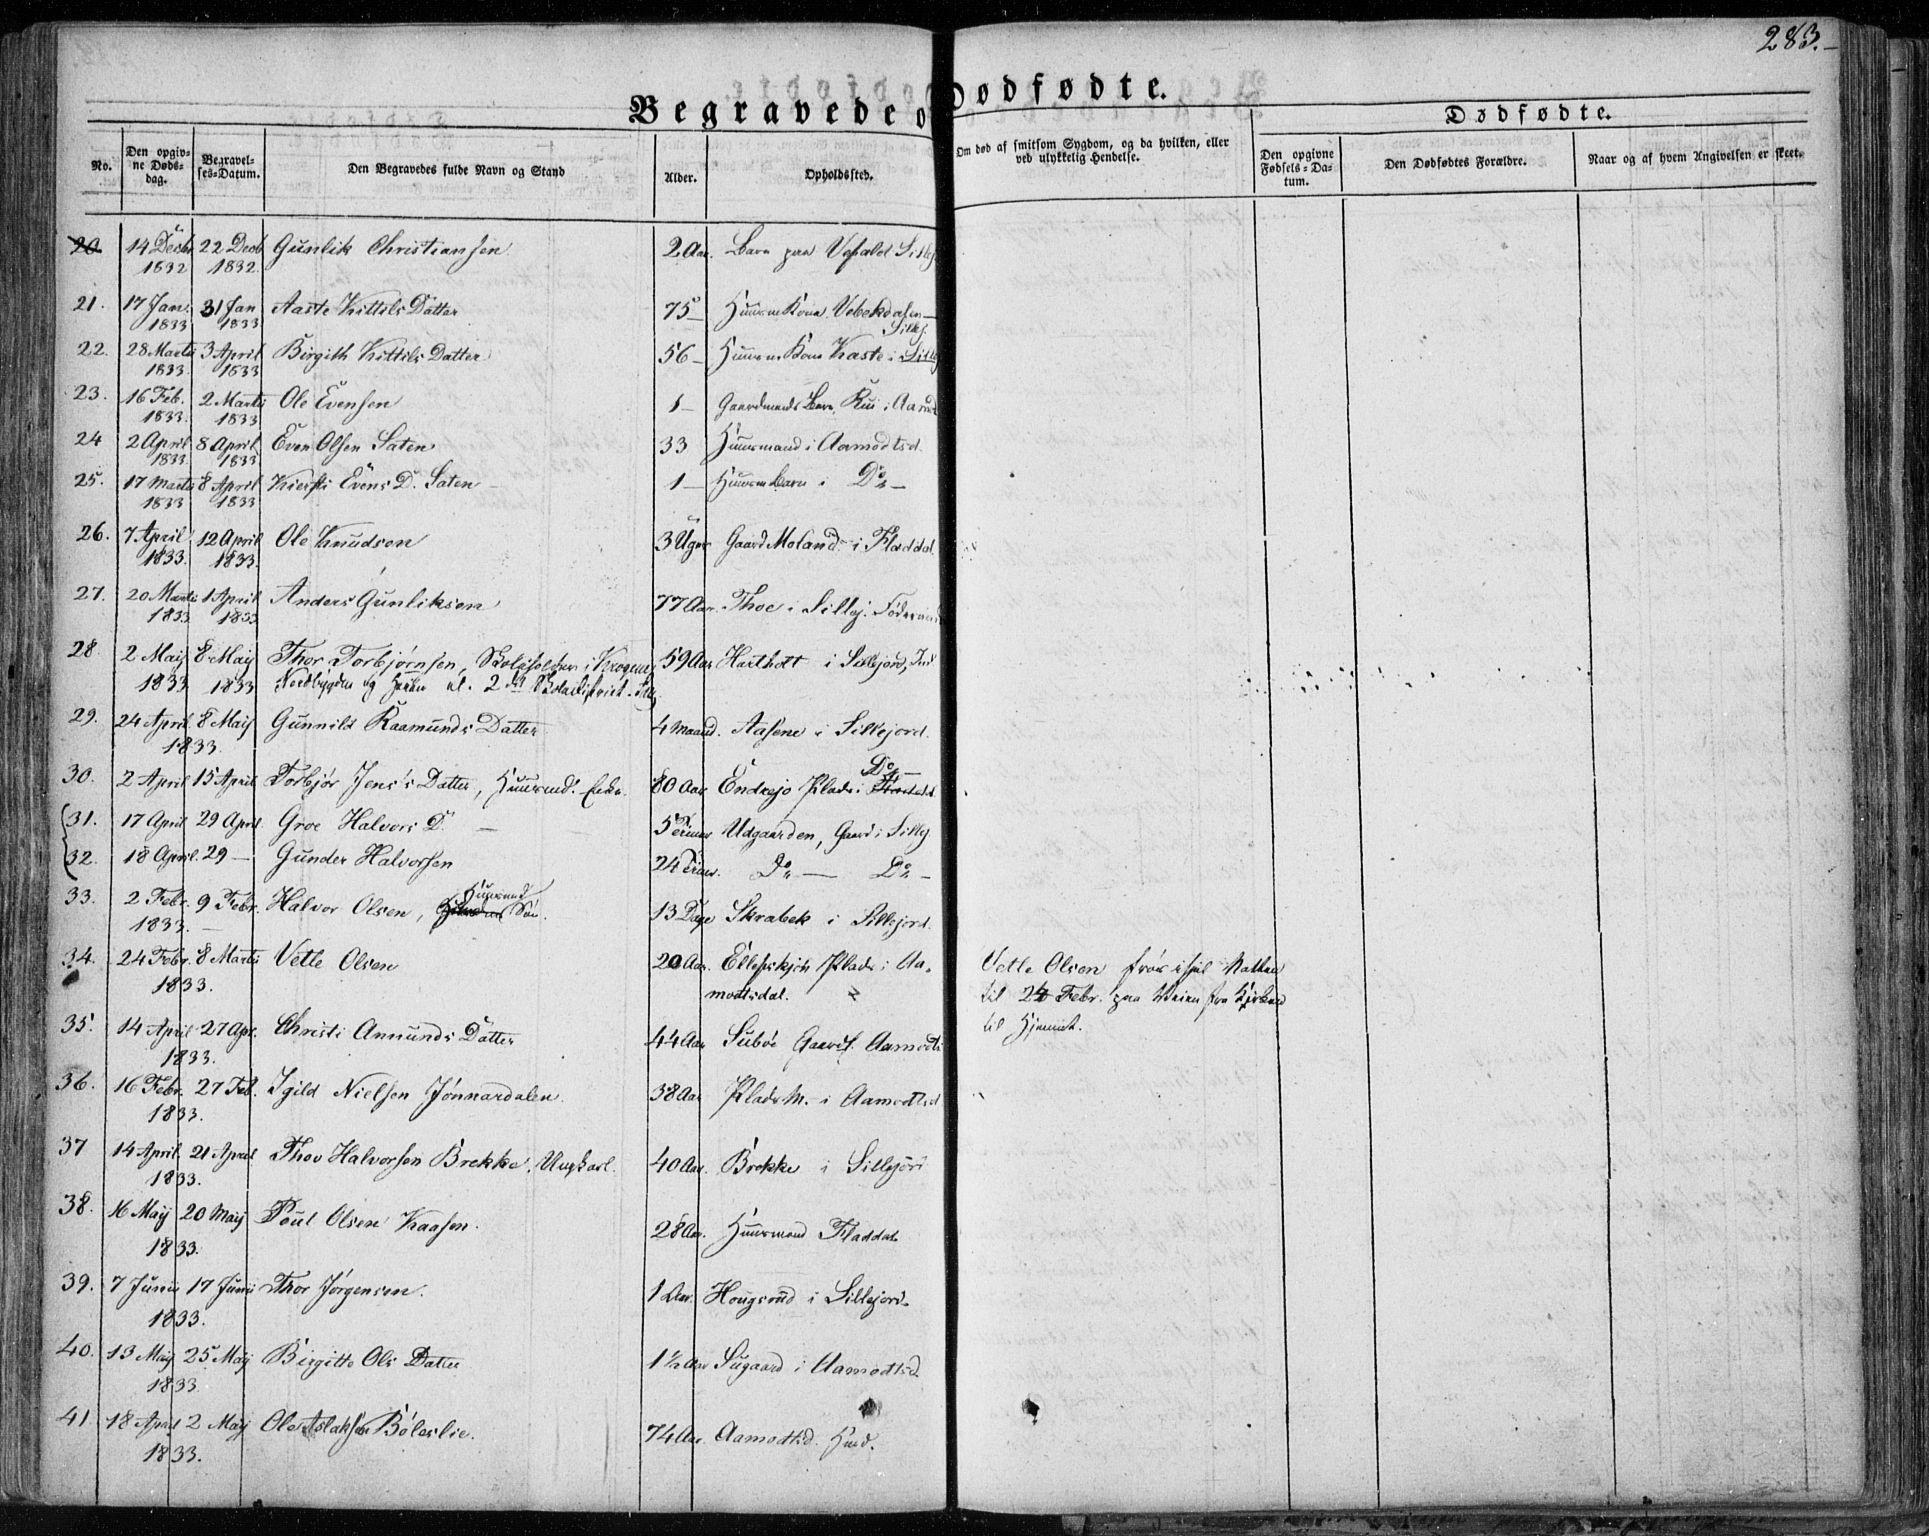 283.
Begravede o Dødfødte.
Dødfødte.
No.
Den opgiv-
ne Døds-
dag.
Begravel-
ses=Datum.
Den Begravedes fulde Navn og Stand
Alder.
Opholdssted.
Om død af smitsom Sygdom, og da hvilken, eller
ved ulykkelig Hendelse.
Den opgivne
Fødsels=Da-
tum.
Den Dødfødtes Forældre.
Naar og af hvem Angivelsen er skeet.
20 14 Decbr 22 Decb Gunlik Christiansen 2 Aar. Barn paa
1832 1832.
21. 17 Jan. 31 Jan Aaste Kittils Datter 75
1833 1833 Sillj.
22. 28 Martii 3 April Birgith Kittils Datter 56 Kaste i Sillj
1833. 1833
23. 16 Feb. 2 Martii Ole Evensen 1 Gaardmands Barn i Aamd
1833. 1833
24 2 April 8 April Even Olsen Saten 33 Huusmand i Aamodtsd.
1833. 1833
25. 17 Martii 8 April Kiersti Evens D. Saten 1 Huusm Barn i Do
1833 1833
26. 7 April 12 April Ole Knudsen 3 Uger Gaard Moland i Fladdal.
1833. 1833.
27. 20 Martii 1 April Anders Gunliksen 77 Aar. Thoe i Sillej.
1833 1833
28. 2 Maij 8 Maij Thor Torbjørnsen, Skoleholder i 59 Aar i Sillejord,
1833 1833 Nordbygden og
29. 24 April 8 Maij Gunnild Raamunds Datter 4 Maand. Aasene i Sillejord.
1833.
30. 2 April 15 April Torbjør Jens's Datter, Huusmd. Enke. 80 Aar Endrejo Plads i Do
31. 17 April 29 April. Groe Halvors D. 5 Timer Udgaarden, Gaard i Sillj
32. 18 April. 29 — Gunder Halvorsen 24 Timer. Do — Do —
33. 2 Febr. 9 Febr. Halvor Olsen, Huusmd Søn. 13 Dage Skrabek i Sillejord.
1833.
34. 24 Febr. 8 Martii Vetle Olsen 20 Aar. Plads i Aa-
1833. modtsdal.
Vetle Olsen frøs ihjel Natten
til 24 Febr. paa Veien fra Kirken
til Hjemmet.
35. 14 April 27 Apr. Christi Amunds Datter 44 Aar Subøe Gaard i Aamodts
1833.
36. 16 Febr. 27 Feb. Igild Nielsen Jønnardalen 38 Aar Plads M. i Aamodtsd
1833.
37 14 April. 21 April Thov Halvorsen Brekke, Ungkarl. 40 Aar. Brekke i Sillejord
1833.
38. 16 Maij 20 Maij Poul Olsen Kaasen. 28 Aar. Huusmand Fladdal
1833.
39. 7 Junii 17 Junii Thor Jørgensen. 1 Aar. Hougsrud i Sillejord.
1833.
40. 13 Maij 25 Maij Birgitte Ols Datter 1 1/2 Aar Sugaard i Aamodtsd.
1833
41. 18 April 2 Maij Ole Aslaksen Bøleslie. 74 Aar. Aamodtsd. Hmd.
1833.